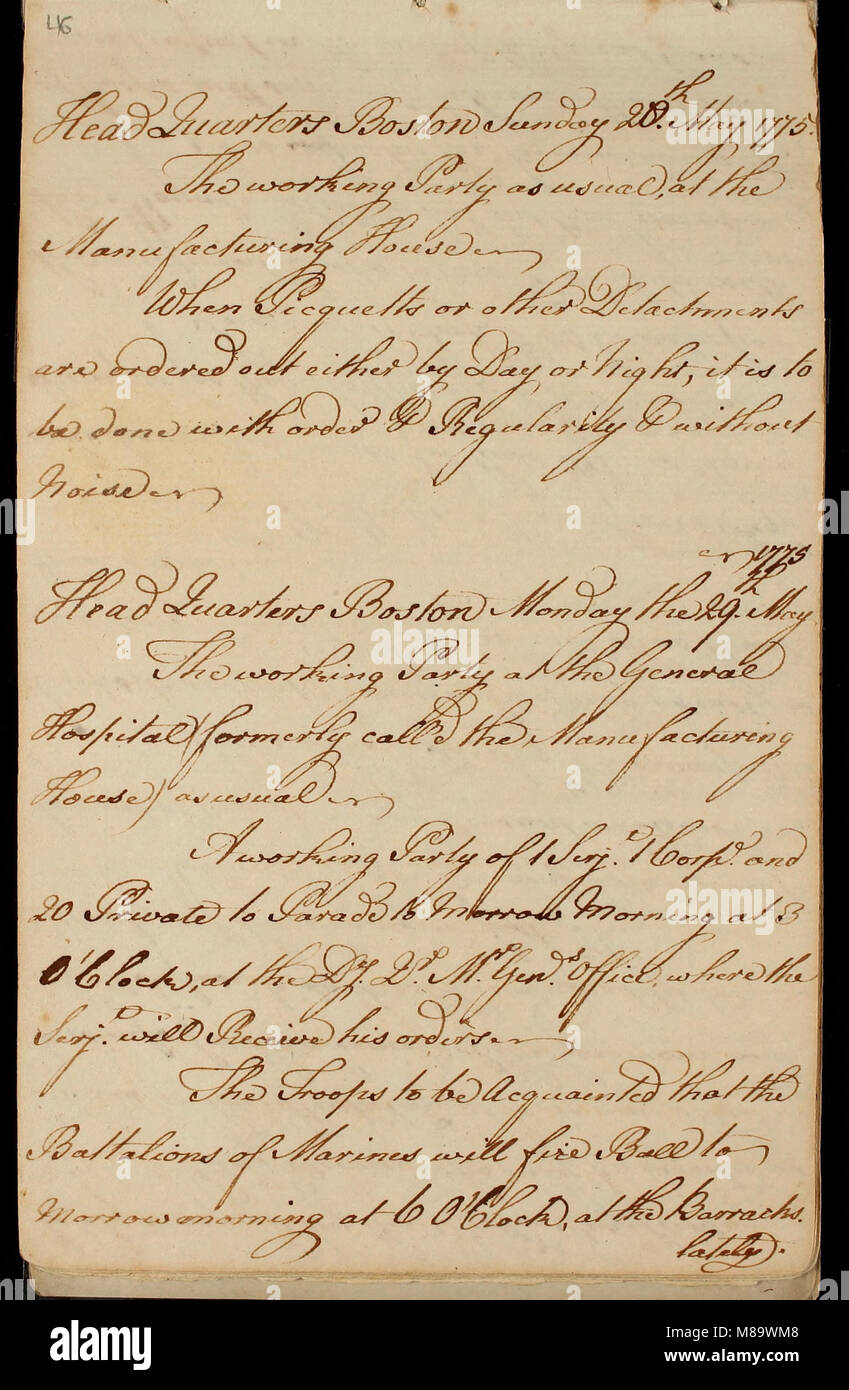 46
Head Quarters Boston Sunday 28.th May 1775.
The working Party as usual, at the
Manufacturing House
When Picquetts or other Detachments
are ordered out either by Day or Night, it is to
be done with order & Regularity & without
Noise
1775
Head Quarters Boston Monday the 29.th May
The working Party at the General
Hospital (formerly call'd the Manufacturing
House) as usual
A working Party of 1 Serj.t 1 Corp.l and
20 Private to Parade to Morrow Morning at 3
O'Clock, at the Dy. Qr. Mr. Gen.s Office, where the
Serj.t will Receive his orders
The Troops to be Acquainted that the
Battalions of Marines will fire Ball to
Morrow morning at 6 O'Clock, at the Barracks.
lately.
alamy
alamy
Image ID: M89WM8
www.alamy.com